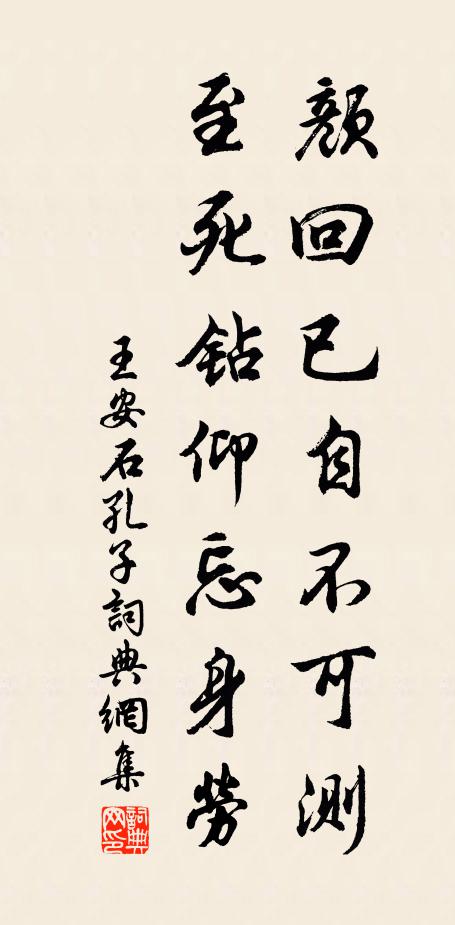 顏回已自不可測
至死钻仰忘身勞
王安石孔子詞典網集
詞典網印